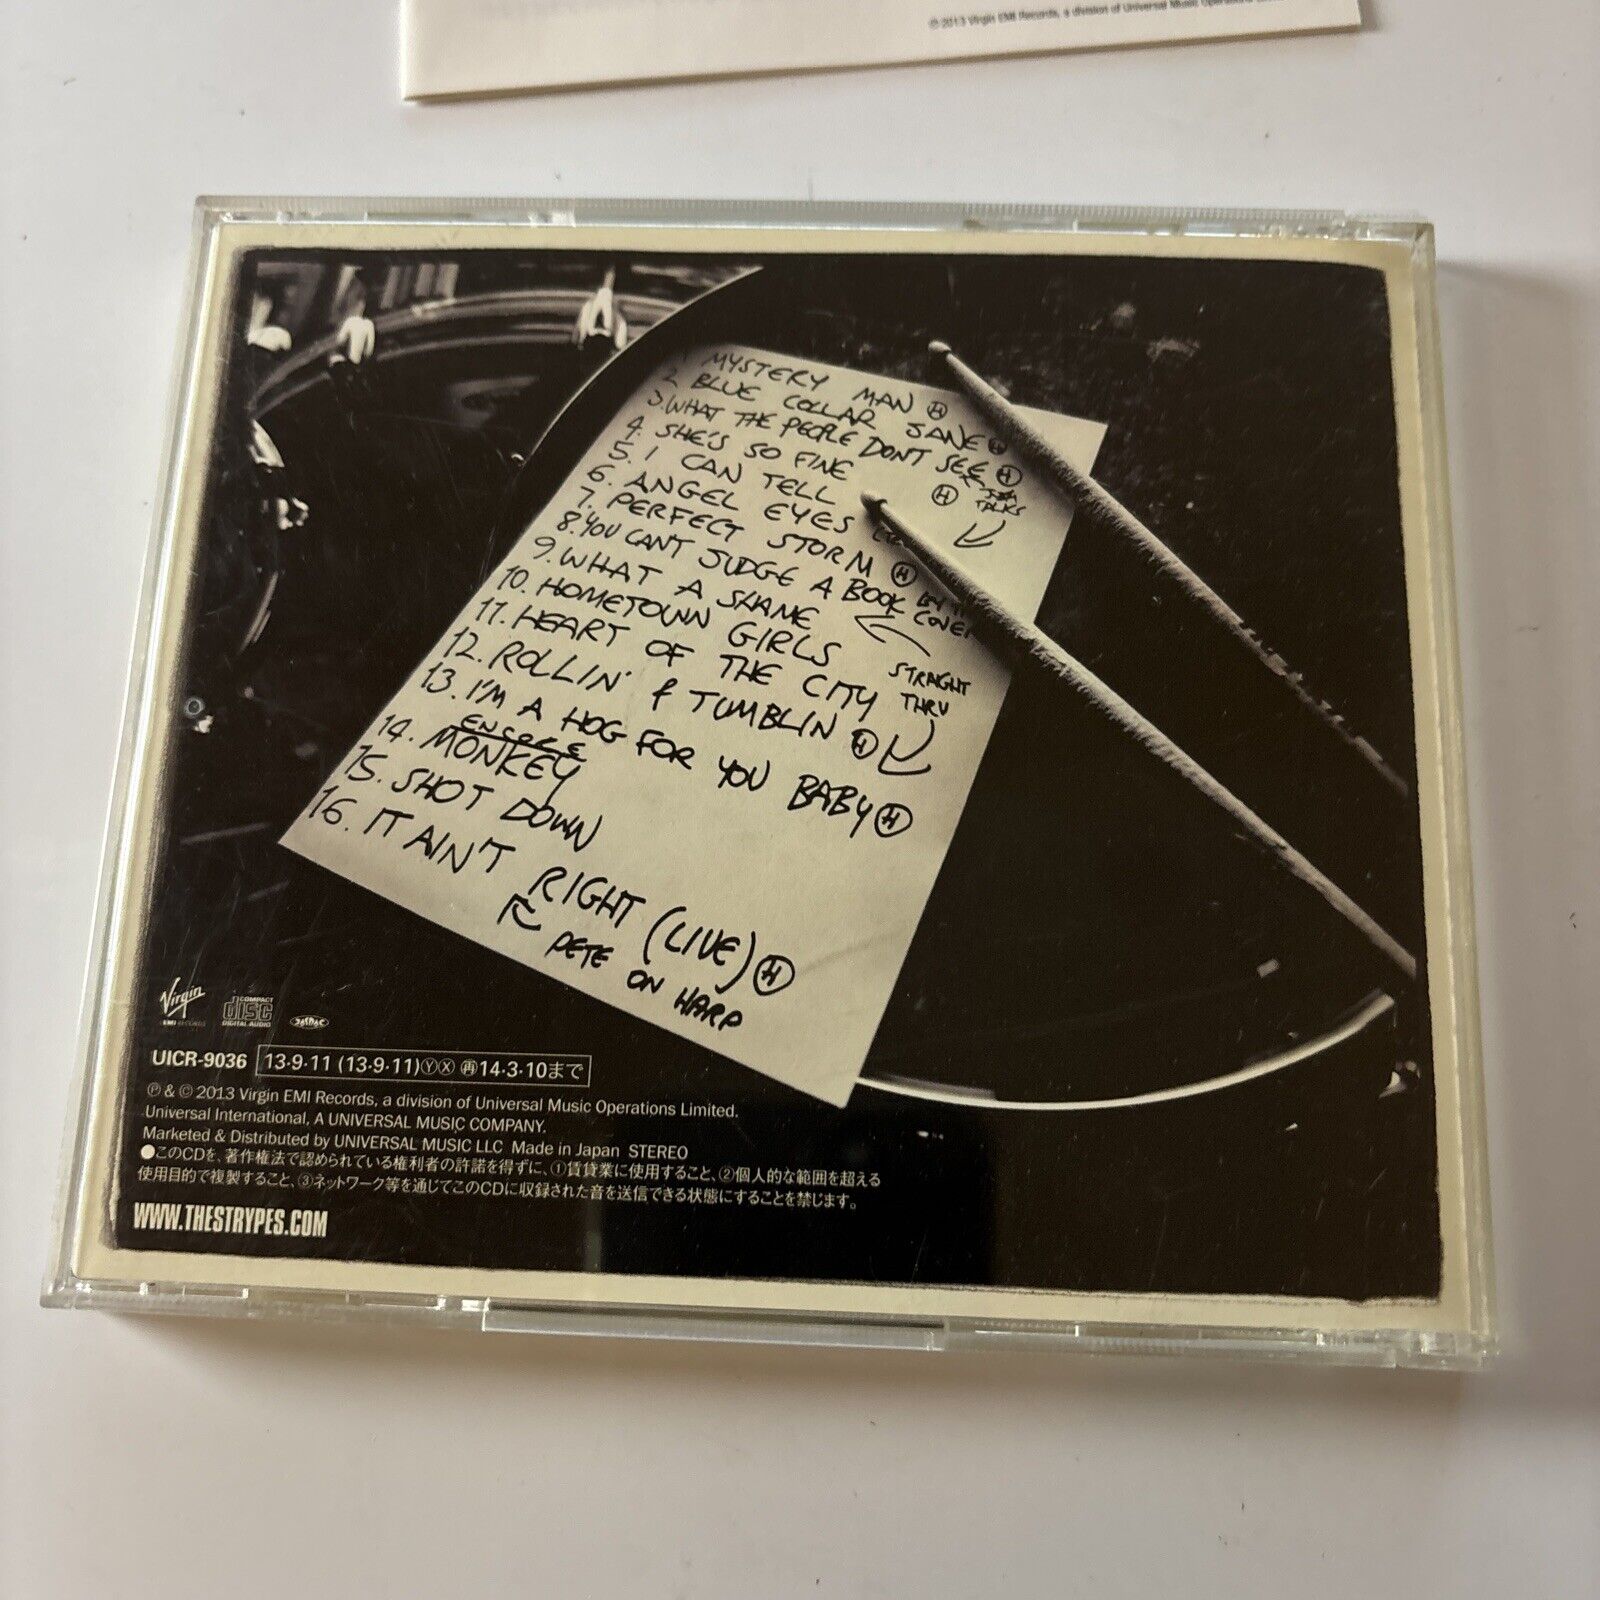 © 2013 Virgin EMI Records, a division of Universal Music Operations
1 MYSTERY MAN Ⓗ
2 BLUE COLLAR JANE Ⓗ
3. WHAT THE PEOPLE DON'T SEE Ⓗ
4. SHE'S SO FINE Ⓗ TALKS
5. I CAN TELL
6. ANGEL EYES
7. PERFECT STORM Ⓗ
8. YOU CAN'T JUDGE A BOOK BY THE COVER
9. WHAT A SHAME
10. HOMETOWN GIRLS
STRAIGHT THRU
11. HEART OF THE CITY
12. ROLLIN' & TUMBLIN Ⓗ
13. I'M A HOG FOR YOU BABY Ⓗ
ENCORE
14. MONKEY
15. SHOT DOWN
16. IT AIN'T RIGHT (LIVE) Ⓗ
PETE ON HARP
Virgin
EMI RECORDS
COMPACT
disc
DIGITAL AUDIO
JASRAC
UICR-9036 13·9·11 (13·9·11)ⓎⓍ ㊢14·3·10まで
℗ & © 2013 Virgin EMI Records, a division of Universal Music Operations Limited.
Universal International, A UNIVERSAL MUSIC COMPANY.
Marketed & Distributed by UNIVERSAL MUSIC LLC Made in Japan STEREO
●このCDを、著作権法で認められている権利者の許諾を得ずに、①賃貸業に使用すること、②個人的な範囲を超える
使用目的で複製すること、③ネットワーク等を通じてこのCDに収録された音を送信できる状態にすることを禁じます。
WWW.THESTRYPES.COM